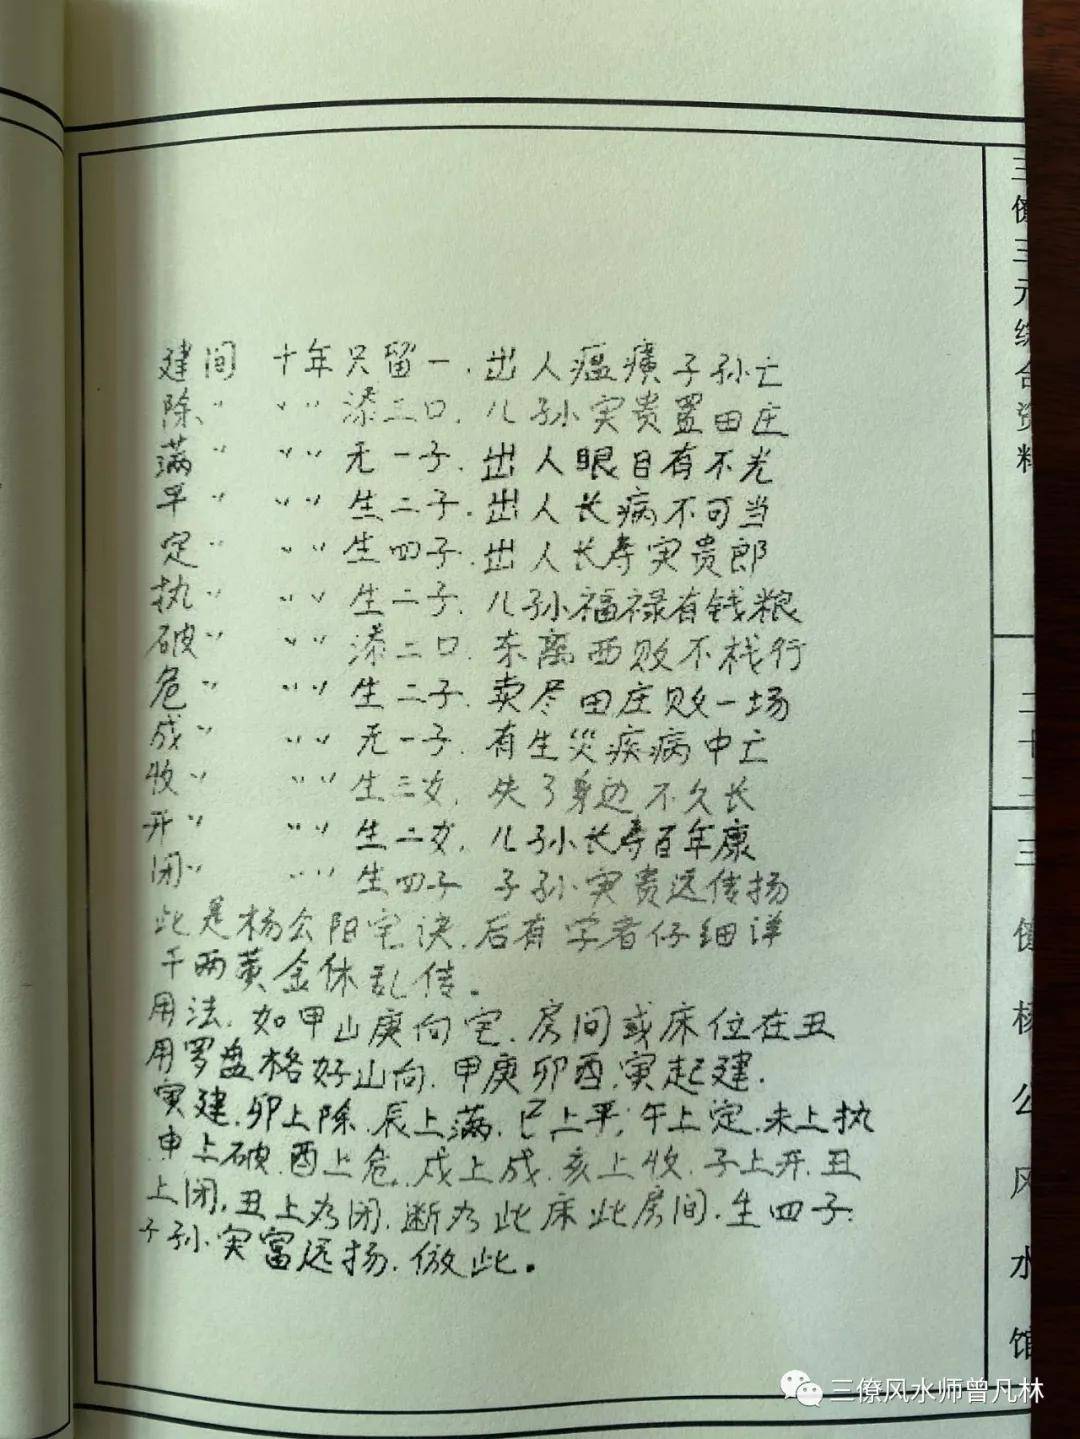 建间 十年只留一.出人瘟㾮子孙亡
除〃 〃〃添三口.儿孙实贵置田庄
满〃 〃〃无一子.出人眼目有不光
平〃 〃〃生二子.出人长病不可当
定〃 〃〃生四子.出人长寿实贵郎
执〃 〃〃生二子.儿孙福禄有钱粮
破〃 〃〃添二口.东离西败不栈行
危〃 〃〃生二子.卖尽田庄败一场
成〃 〃〃无一子.有生災疾病中亡
收〃 〃〃生三女.失了身边不久长
开〃 〃〃生二女.儿孙长寿百年康
闭〃 〃〃生四子 子孙实贵远传扬
此是杨公阳宅诀.后有学者仔细详
千两黄金休乱传。
用法.如甲山庚向宅.房间或床位在丑
用罗盘格好山向.甲庚卯酉.寅起建.
寅建.卯上除.辰上满.巳上平;午上定.未上执
申上破.酉上危.戍上成.亥上收.子上开.丑
上闭,丑上为闭.断为此床此房间.生四子:
子孙.实富远扬.仿此。
三僚三元综合资料
二十三
三僚杨公风水馆
三僚风水师曾凡林